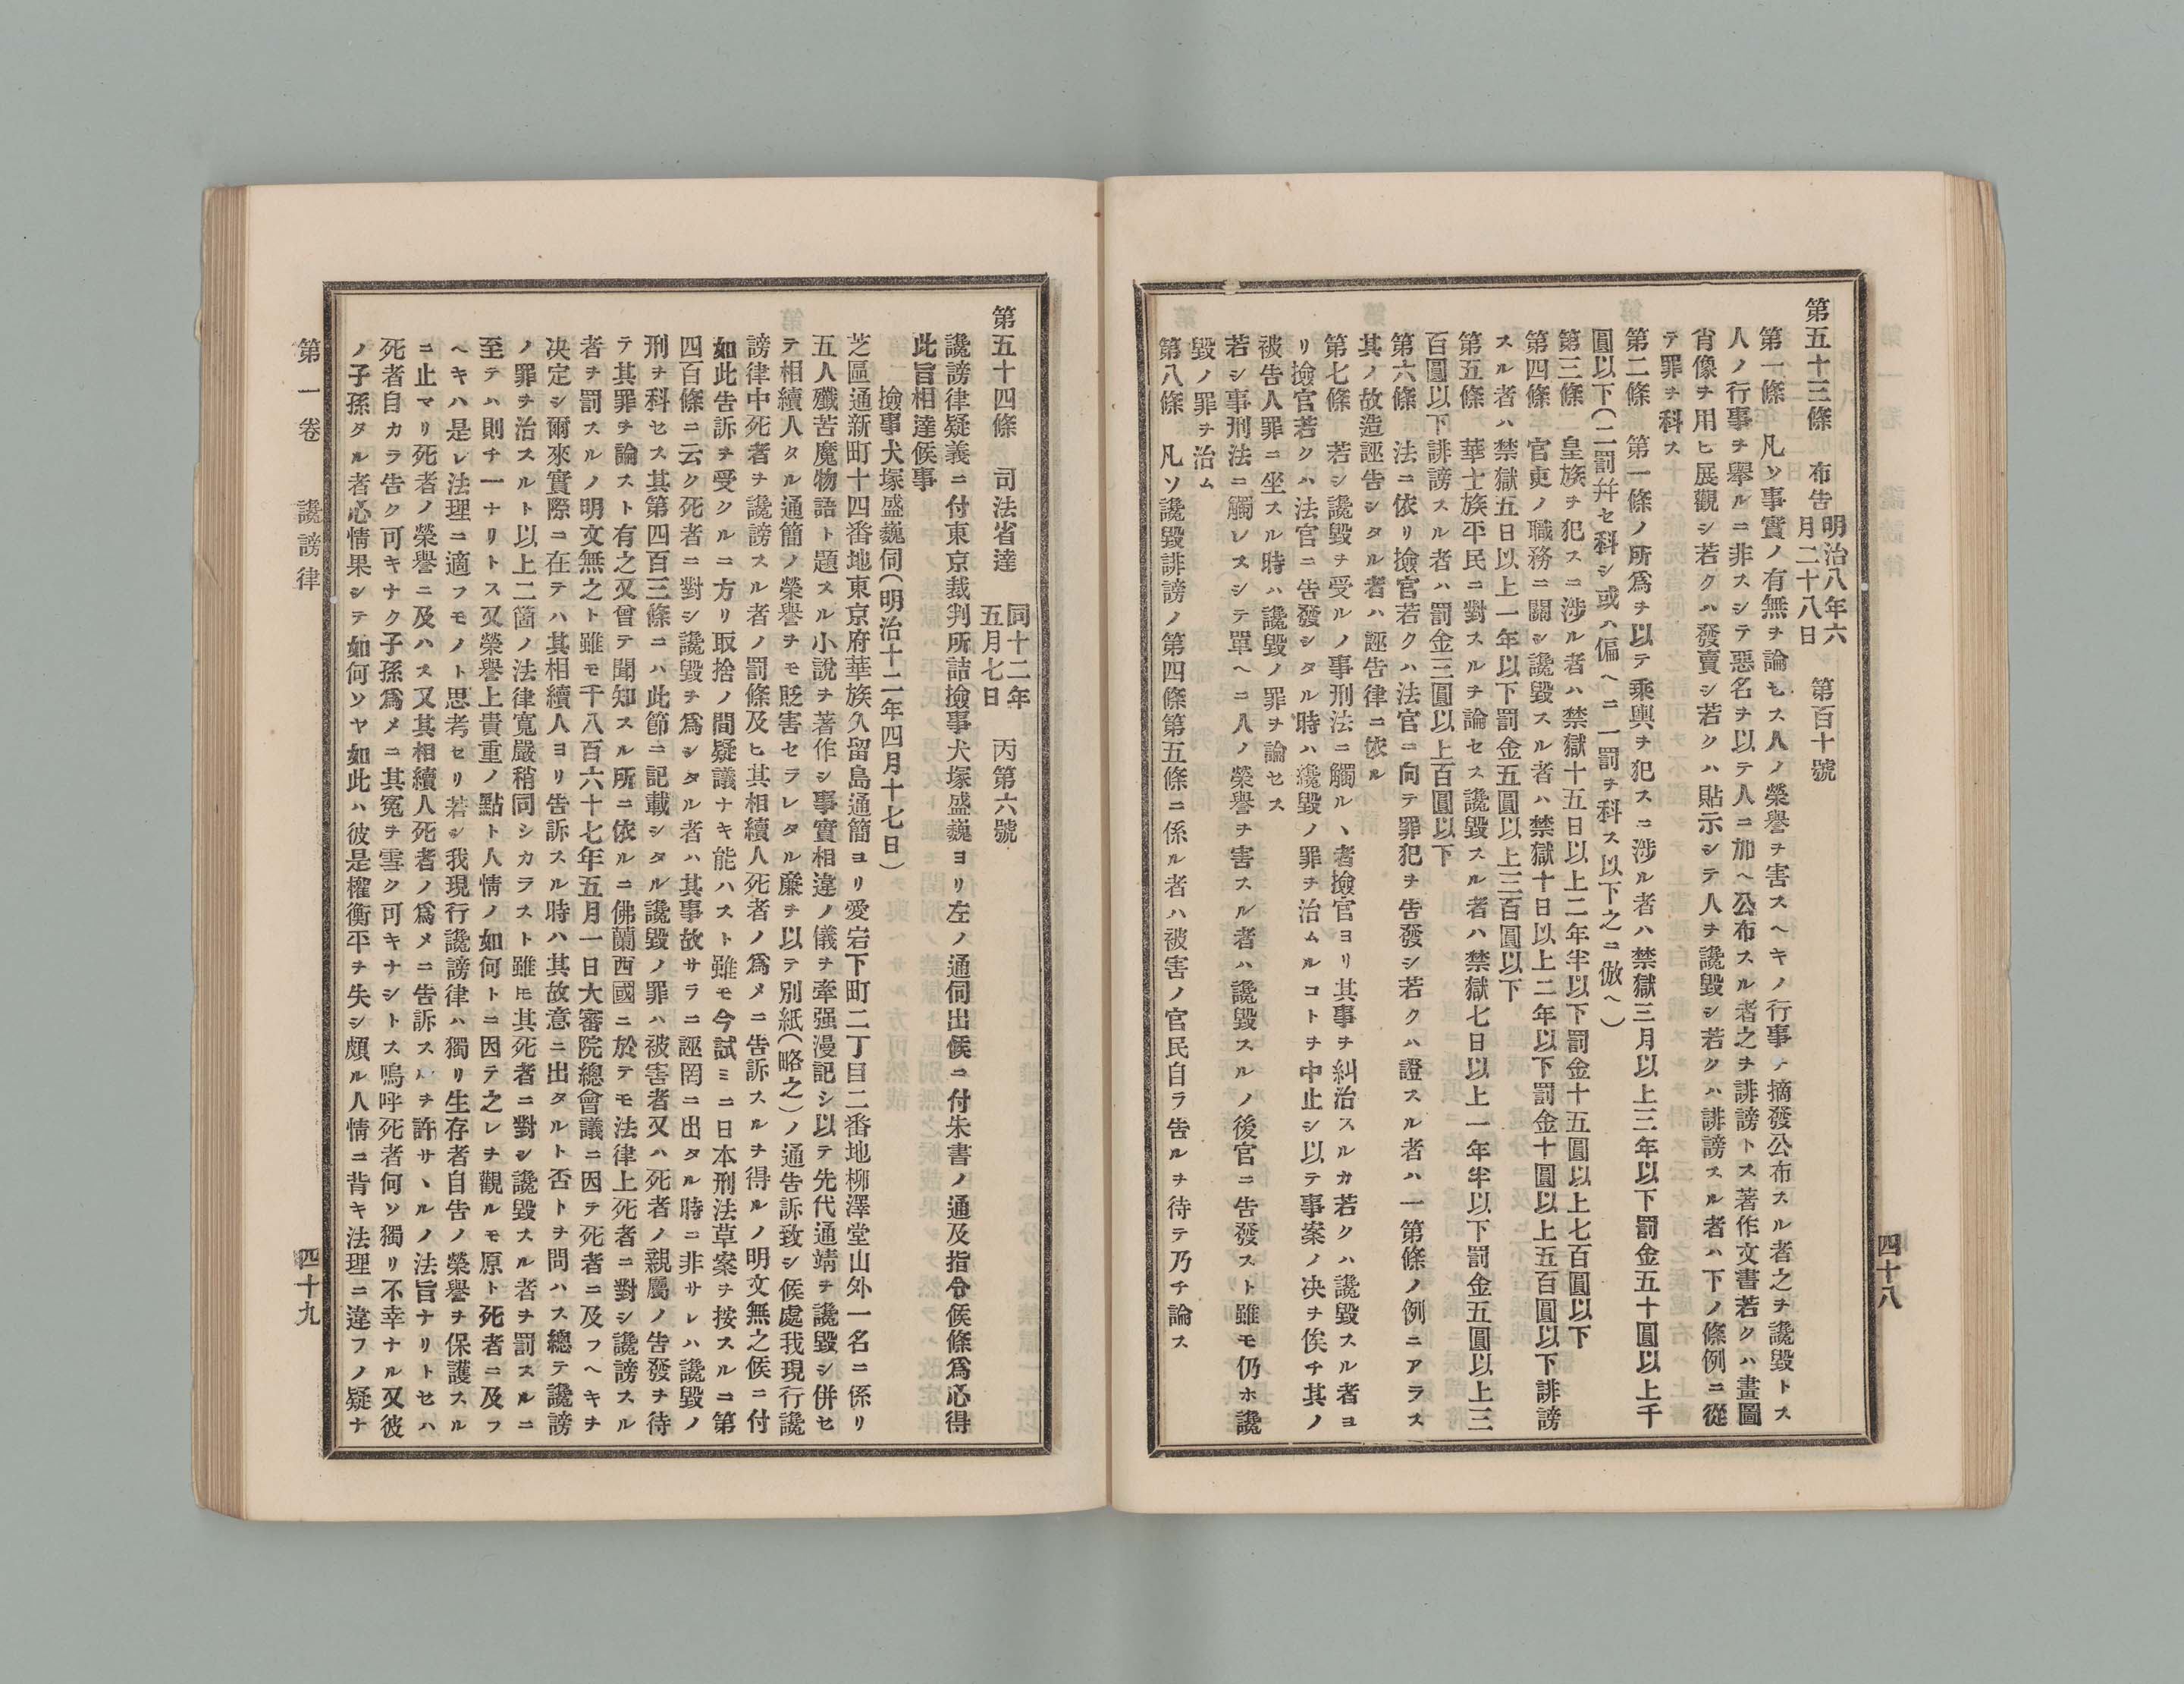 第五十三條　布告　明治八年六月二十八日　第百十號
第一條　凡ソ事實ノ有無ヲ論セス人ノ榮譽ヲ害スヘキノ行事ヲ摘發公布スル者之ヲ讒毀トス
人ノ行事ヲ擧ルニ非スシテ惡名ヲ以テ人ニ加ヘ公布スル者之ヲ誹謗トス著作文書若クハ畫圖
肖像ヲ用ヒ展觀シ若クハ發賣シ若クハ貼示シテ人ヲ讒毀シ若クハ誹謗スル者ハ下ノ條例ニ從
テ罪ヲ科ス
第二條　第一條ノ所爲ヲ以テ乘輿ヲ犯スニ涉ル者ハ禁獄三月以上三年以下罰金五十圓以上千
圓以下(二罰幷セ科シ或ハ偏ヘニ一罰ヲ科ス以下之ニ倣ヘ)
第三條　皇族ヲ犯スニ涉ル者ハ禁獄十五日以上二年半以下罰金十五圓以上七百圓以下
第四條　官吏ノ職務ニ關シ讒毀スル者ハ禁獄十日以上二年以下罰金十圓以上五百圓以下誹謗
スル者ハ禁獄五日以上一年以下罰金五圓以上三百圓以下
第五條　華士族平民ニ對スルヲ論セス讒毀スル者ハ禁獄七日以上一年半以下罰金五圓以上三
百圓以下誹謗スル者ハ罰金三圓以上百圓以下
第六條　法ニ依リ撿官若クハ法官ニ向テ罪犯ヲ告發シ若クハ證スル者ハ一第條ノ例ニアラス
其ノ故造誣告シタル者ハ誣告律ニ依ル
第七條　若シ讒毀ヲ受ルノ事刑法ニ觸ルヽ者撿官ヨリ其事ヲ糾治スルカ若クハ讒毀スル者ヨ
リ撿官若クハ法官ニ告發シタル時ハ讒毀ノ罪ヲ治ムルコトヲ中止シ以テ事案ノ决ヲ俟チ其ノ
被告人罪ニ坐スル時ハ讒毀ノ罪ヲ論セス
若シ事刑法ニ觸レスシテ單ヘニ人ノ榮譽ヲ害スル者ハ讒毀スルノ後官ニ告發スト雖モ仍ホ讒
毀ノ罪ヲ治ム
第八條　凡ソ讒毀誹謗ノ第四條第五條ニ係ル者ハ被害ノ官民自ラ告ルヲ待テ乃チ論ス
四十八
第五十四條　司法省達　同十二年五月七日　丙第六號
讒謗律疑義ニ付東京裁判所詰撿事犬塚盛巍ヨリ左ノ通伺出候ニ付朱書ノ通及指令候條爲心得
此旨相達候事
撿事犬塚盛巍伺(明治十二年四月十七日)
芝區通新町十四番地東京府華族久留島通簡ヨリ愛岩下町二丁目二番地柳澤堂山外一名ニ係リ
五人殲苦魔物語ト題スル小說ヲ著作シ事實相違ノ儀ヲ牽强漫記シ以テ先代通靖ヲ讒毀シ併セ
テ相續人タル通簡ノ榮譽ヲモ貶害セラレタル廉ヲ以テ別紙(略之)ノ通告訴致シ候處我現行讒
謗律中死者ヲ讒謗スル者ノ罰條及ヒ其相續人死者ノ爲メニ告訴スルヲ得ルノ明文無之候ニ付
如此告訴ヲ受クルニ方リ取捨ノ間疑議ナキ能ハスト雖モ今試ミニ日本刑法草案ヲ按スルニ第
四百條ニ云ク死者ニ對シ讒毀ヲ爲シタル者ハ其事故サラニ誣罔ニ出タル時ニ非サレハ讒毀ノ
刑ヲ科セス其第四百三條ニハ此節ニ記載シタル讒毀ノ罪ハ被害者又ハ死者ノ親屬ノ告發ヲ待
テ其罪ヲ論スト有之又曾テ聞知スル所ニ依ルニ佛蘭西國ニ於テモ法律上死者ニ對シ讒謗スル
者ヲ罰スルノ明文無之ト雖モ千八百六十七年五月一日大審院總會議ニ因テ死者ニ及フヘキヲ
决定シ爾來實際ニ在テハ其相續人ヨリ告訴スル時ハ其故意ニ出タルト否トヲ問ハス總テ讒謗
ノ罪ヲ治スルト以上二箇ノ法律寬嚴稍同シカラスト雖モ其死者ニ對シ讒毀スル者ヲ罰スルニ
至テハ則チ一ナリトス又榮譽上貴重ノ點ト人情ノ如何トニ因テ之レヲ觀ルモ原ト死者ニ及フ
ヘキハ是レ法理ニ適フモノト思考セリ若シ我現行讒謗律ハ獨リ生存者自告ノ榮譽ヲ保護スル
ニ止マリ死者ノ榮譽ニ及ハス又其相續人死者ノ爲メニ告訴スルヲ許サヽルノ法旨ナリトセハ
死者自カラ告ク可キナク子孫爲メニ其冤ヲ雪ク可キナシトス嗚呼死者何ソ獨リ不幸ナル又彼
ノ子孫タル者心情果シテ如何ソヤ如此ハ彼是權衡平ヲ失シ頗ル人情ニ背キ法理ニ違フノ疑ナ
第一卷　讒謗律　四十九